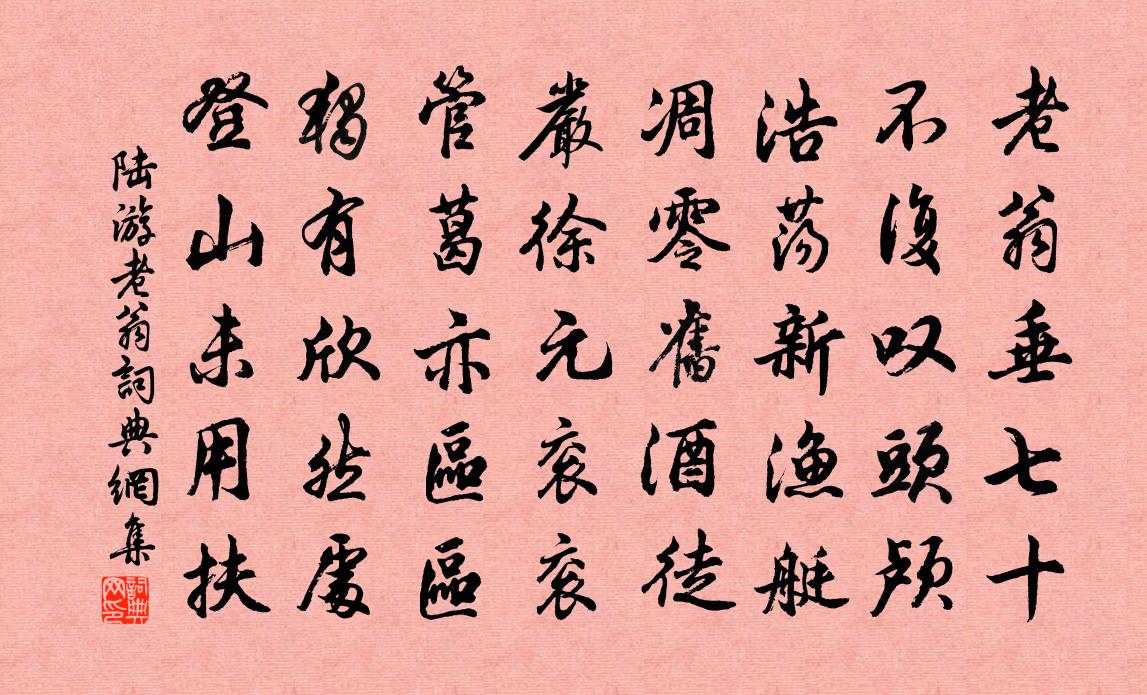 老翁垂七十
不復叹頭颅
浩荡新漁艇
凋零舊酒徒
嚴徐元衮衮
管葛亦區區
獨有欣然處
登山未用扶
陆游老翁詞典網集